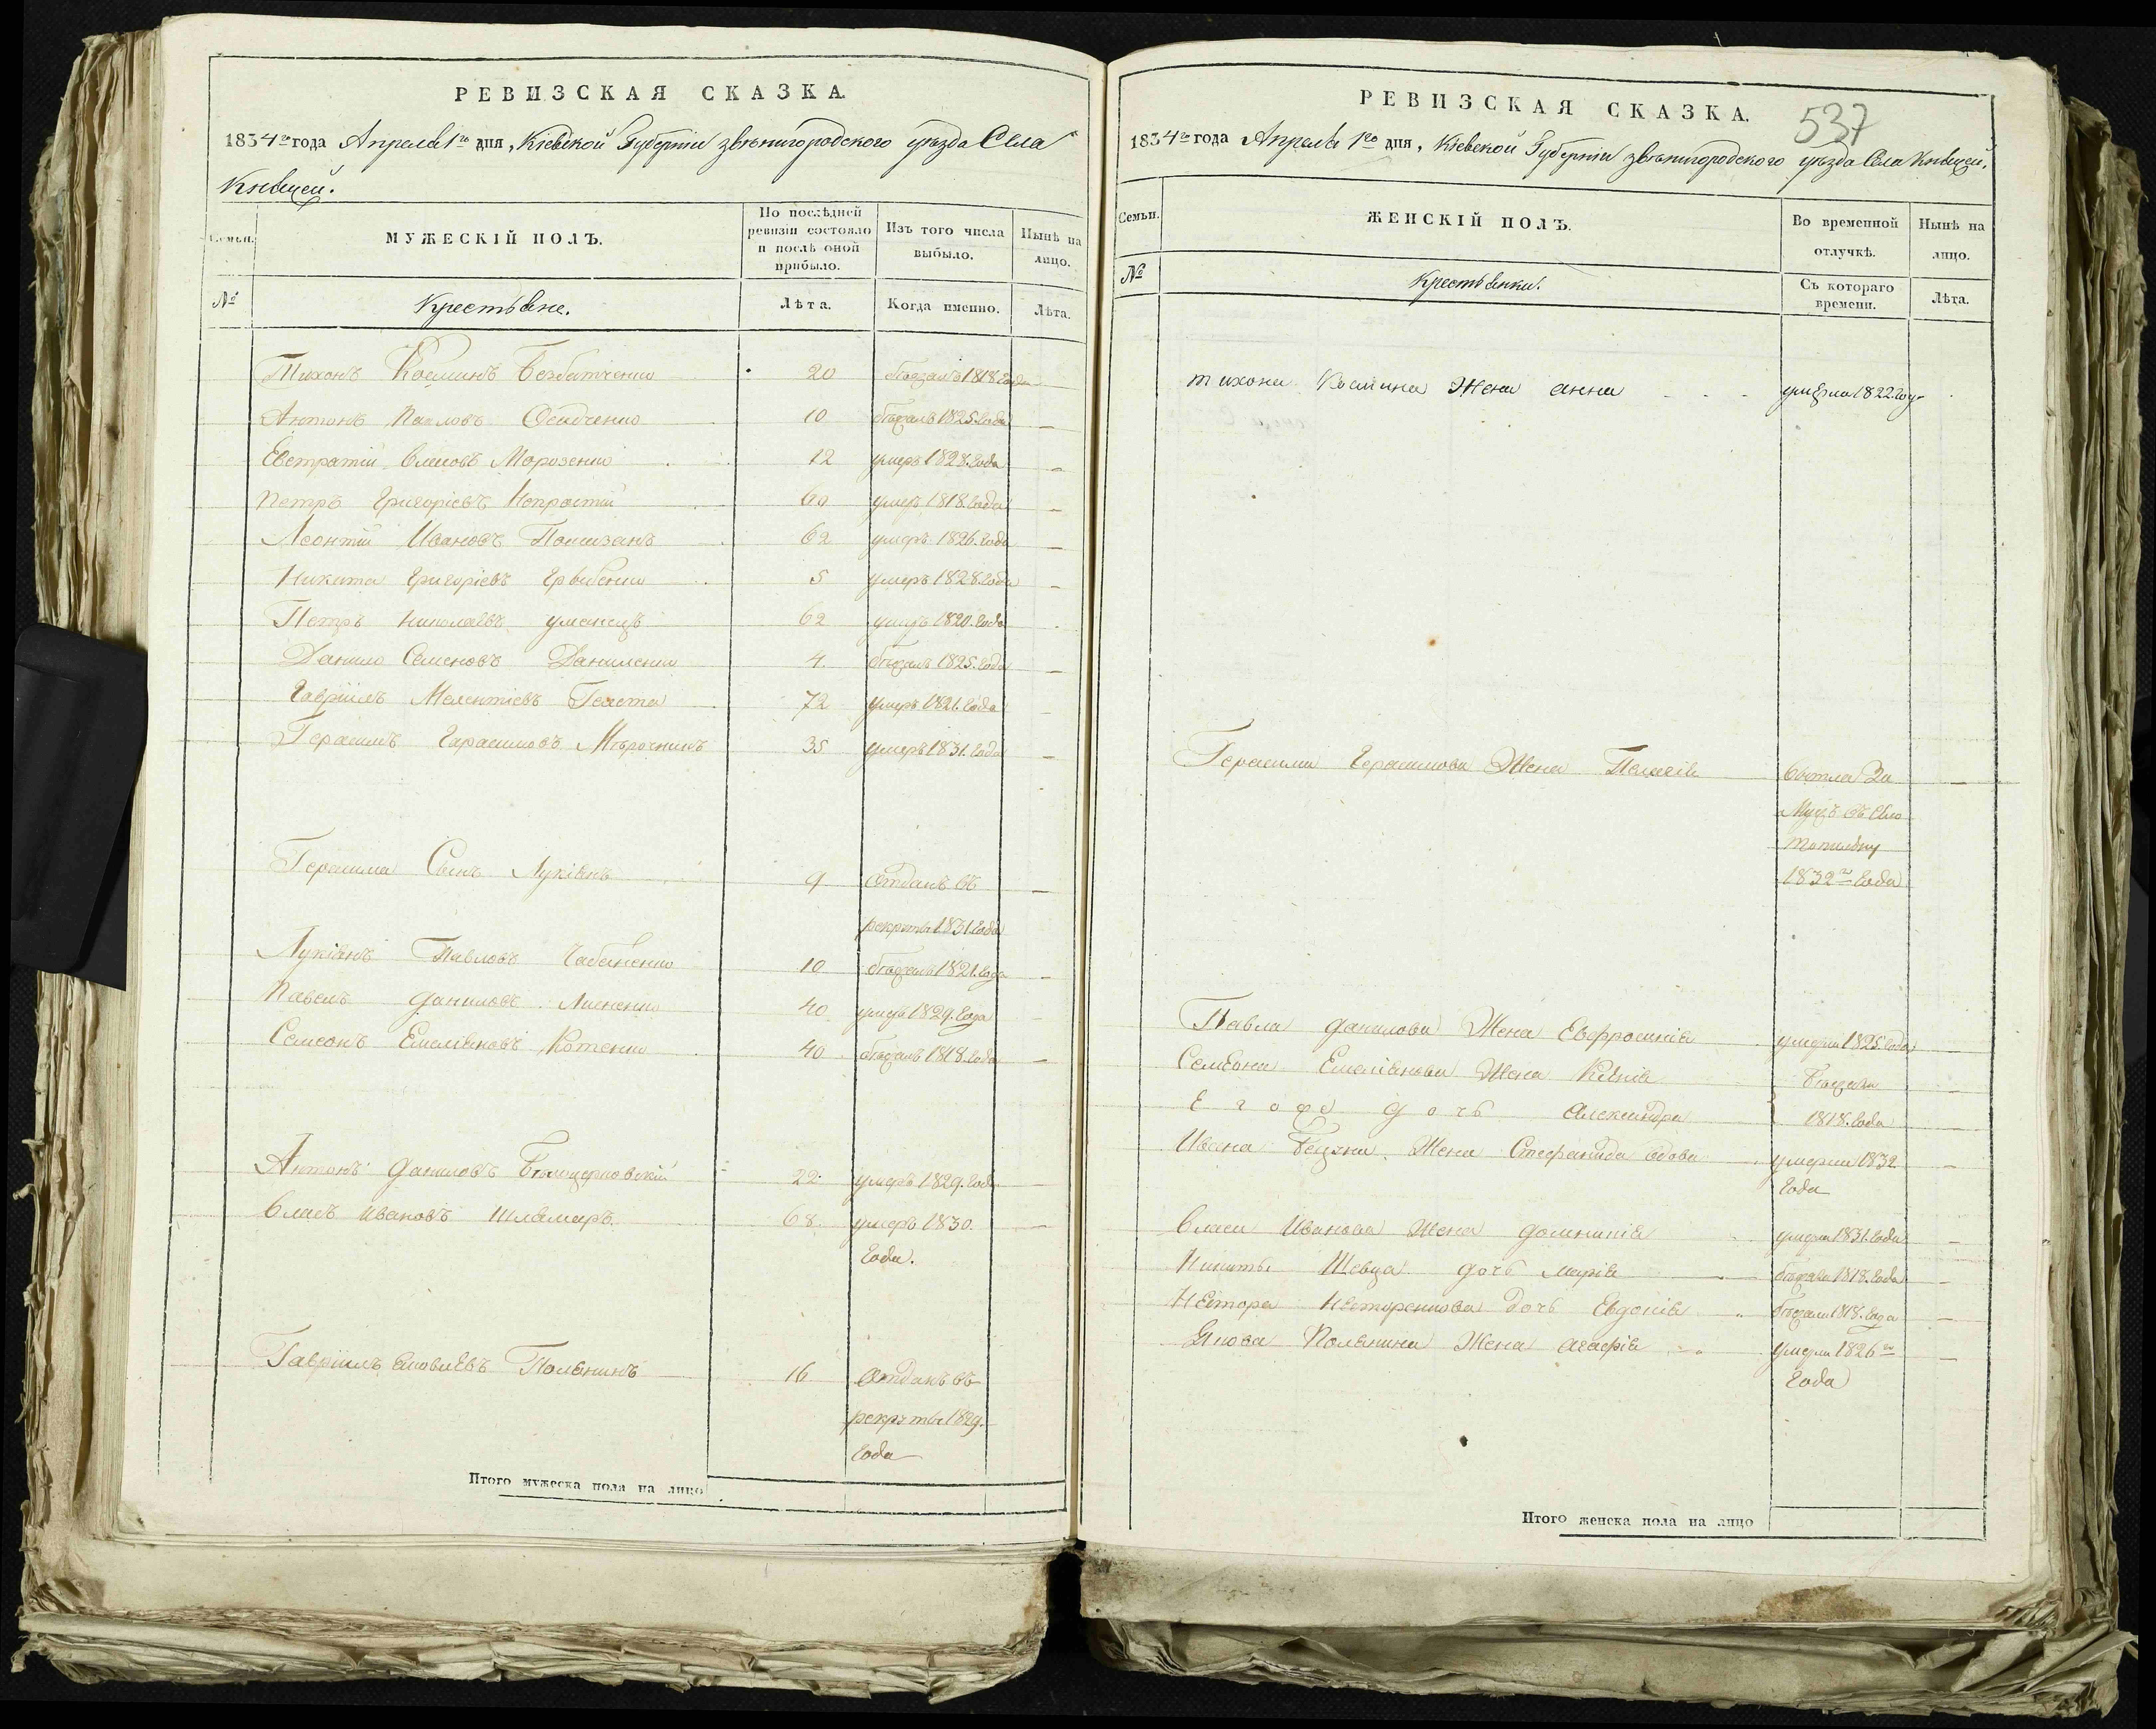 РЕВИЗСКАЯ СКАЗКА.
1834го года Апреля 1го дня, Кіевской Губерніи звѣнигородского уѣзда Села
Княжей.
Семьи.
МУЖЕСКІЙ ПОЛЪ.
По послѣдней ревизіи состояло и послѣ оной прибыло.
Изъ того числа выбыло.
Нынѣ на лицо.
№
Крестьяне.
Лѣта.
Когда именно.
Лѣта.
Тихонъ Косминъ 20 бѣжалъ 1818 года
Антонъ Павловъ Осадченко 10 бѣжалъ 1825. года
Евстратій Власовъ Морозенко 12 умеръ 1828. года
Петръ Григоріевъ 60 умеръ 1818. года
Леонтій Ивановъ 62 умеръ 1826. года
Никита Григоріевъ 5 умеръ 1828. года
Петръ Николаевъ уманецъ 62 умеръ 1820. года
Данило Семеновъ Даниленко 4. бѣжалъ 1825. года
Гавріилъ Мелентіевъ 72 умеръ 1821. года
Герасимъ Герасимовъ Мѣрочникъ 35 умеръ 1831. года
Герасима Сынъ Лукіянъ 9 отданъ въ
рекруты 1831. года
Лукіянъ Павловъ Чабаненко 10 бѣжалъ 1821. года
Павелъ Даниловъ 40 умеръ 1829. года
Семеонъ Емеліяновъ Котенко 40 бѣжалъ 1818. года
Антонъ Даниловъ Бѣлоцерковскій 22. умеръ 1829. года
Власъ Ивановъ 68. умеръ 1830.
года.
Гавріилъ Яковлевъ Полянинъ 16 отданъ въ
рекруты 1829.
года
Итого мужеска пола на лицо
РЕВИЗСКАЯ СКАЗКА.
537
1834го года Апреля 1го дня, Кіевской Губерніи звѣнигородского уѣзда Села Княжей.
Семьи.
ЖЕНСКІЙ ПОЛЪ.
Во временной отлучкѣ.
Нынѣ на лицо.
№
Крестьянки.
Съ котораго времени.
Лѣта.
тихона Космина Жена анна умерла 1822 году
Герасима Герасимова Жена Пелагія Вышла За
Мужъ въ Село
1832го года
Павла Данилова Жена Евфросинія умерла 1825. года
Семеона Емеліянова Жена Ксенія бѣжали
Егоже дочь Александра 1818. года
Ивана Жена Стефанида вдова умерла 1832
года
Власа Иванова Жена Домникія умерла 1831. года
Никиты Шевца дочь марія бѣжала 1818. года
Нестора Нестеренкова дочь Евдокія бѣжала 1818. года
Якова Полянина Жена агафія умерла 1826го
года
Итого женска пола на лицо